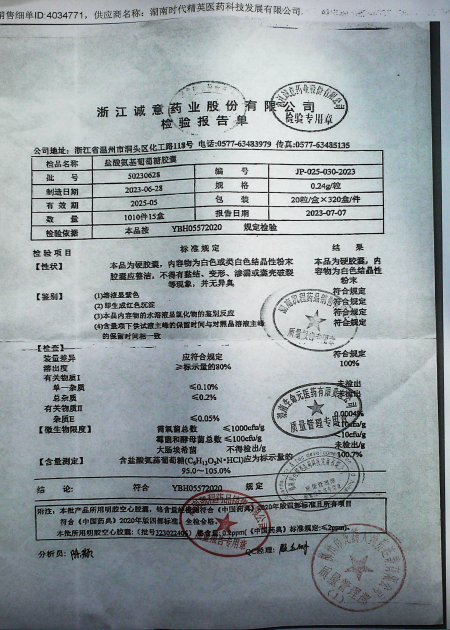 销售细单ID:4034771，供应商名称：湖南时代精英医药科技发展有限公司
浙江诚意药业股份有限公司
检验报告单
公司地址：浙江省温州市洞头区化工路118号 电话:0577-63483979 传真:0577-63485135
检品名称 盐酸氨基葡萄糖胶囊
批 号 50230628 编 号 JP-025-030-2023
制造日期 2023-06-28 规 格 0.24g/粒
有 效 期 2025-05 包 装 20粒/盒×320盒/件
数 量 1010件15盒 报告日期 2023-07-07
检验依据 本品按 YBH05572020 规定检验
检 验 项 目 标 准 规 定 结 果
【性状】 本品为硬胶囊，内容物为白色或类白色结晶性粉末 本品为硬胶囊，内
胶囊应整洁，不得有黏结、变形、渗漏或囊壳破裂 容物为白色结晶性
等现象，并无异臭 粉末
【鉴别】 (1)溶液显紫色 符合规定
(2)即生成红色沉淀 符合规定
(3)本品内容物的水溶液显氯化物的鉴别反应 符合规定
(4)含量项下供试液主峰的保留时间与对照品溶液主峰 符合规定
的保留时间相一致
【检查】
装量差异 应符合规定 符合规定
溶出度 ≥标示量的80% 100%
有关物质I
单一杂质 ≤0.10% 未检出
总杂质 ≤0.2% 未检出
有关物质II
杂质E ≤0.05% 0.0004%
【微生物限度】 需氧菌总数 ≤1000cfu/g <10cfu/g
霉菌和酵母菌总数 ≤100cfu/g <10cfu/g
大肠埃希菌 不得检出/g 未检出/g
【含量测定】 含盐酸氨基葡萄糖(C₆H₁₃O₅N·HCl)应为标示量的 100.7%
95.0～105.0%
结 论: 符合 YBH05572020 规 定
附注：本批产品所用明胶空心胶囊，铬含量经检测符合《中国药典》2020年版四部标准且所有项目
符合《中国药典》2020年版四部标准，全检合格
本批所用明胶空心胶囊:（批号323022406）铬含量 0.2ppm(《中国药典》标准规定:≤2ppm).
分析员: QC经理:
检验专用章
质量管理专用章